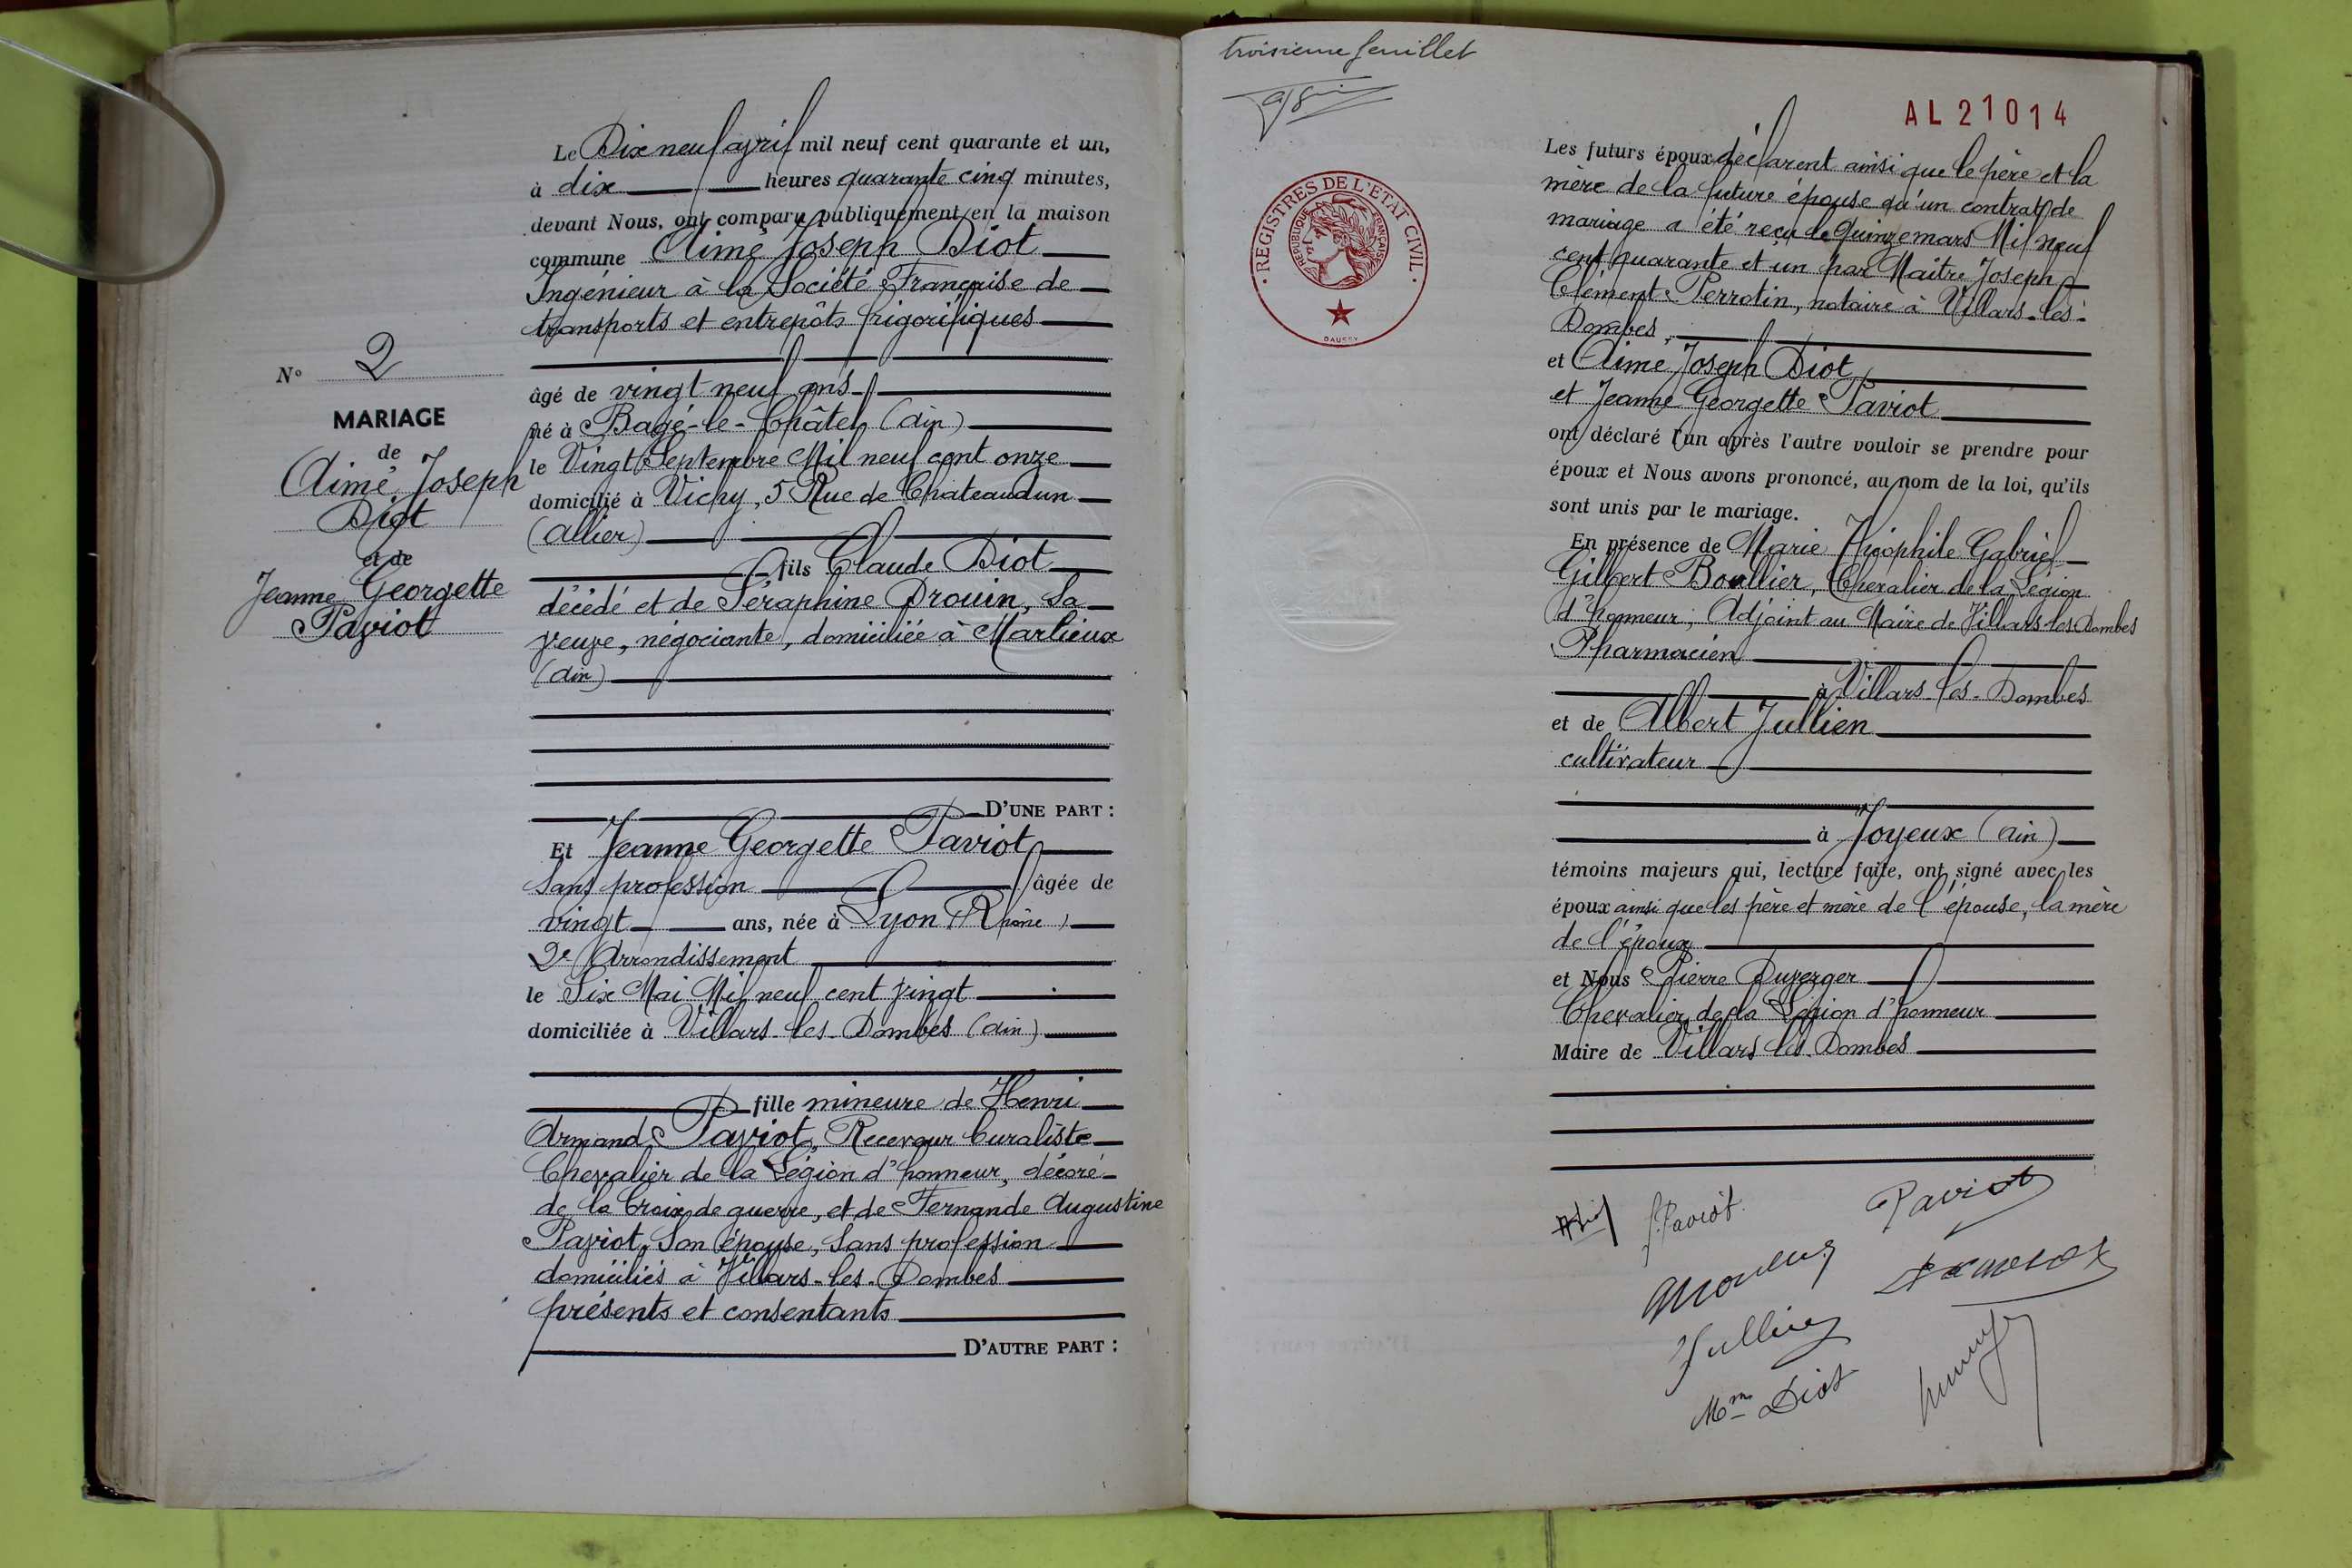 Le Dix neuf avril mil neuf cent quarante et un,
à dix heures quarante cinq minutes,
devant Nous, ont comparu publiquement en la maison
commune Aimé Joseph Diot
Ingénieur à la Société Française de
transports et entrepôts frigorifiques
N° 2
MARIAGE
de
Aimé Joseph
Diot
et de
Jeanne Georgette
Paviot
âgé de vingt neuf ans
né à Bagé-le-Châtel (Ain)
le Vingt Septembre Mil neuf cent onze
domicilié à Vichy, 5 Rue de Chateaudun
(Allier)
fils Claude Diot
décédé et de Séraphine Drouin, sa
veuve, négociante, domiciliée à Marlieux
(Ain)
D'UNE PART :
Et Jeanne Georgette Paviot
sans profession âgée de
vingt ans, née à Lyon (Rhône)
2e Arrondissement
le Six Mai Mil neuf cent vingt
domiciliée à Villars-les-Dombes (Ain)
fille mineure de Henri
Armand Paviot, Receveur buraliste
Chevalier de la Légion d'honneur, décoré
de la Croix de guerre, et de Fernande Augustine
Paviot, son épouse, sans profession
domiciliés à Villars-les-Dombes
présents et consentants
D'AUTRE PART :
troisieme feuillet
AL21014
REGISTRES DE L'ETAT CIVIL
REPUBLIQUE FRANÇAISE
DAUSSY
Les futurs époux déclarent ainsi que le père et la
mère de la future épouse qu'un contrat de
mariage a été reçu le Quinze mars Mil neuf
cent quarante et un par Maitre Joseph
Clément Perrotin, notaire à Villars-les-
Dombes,
et Aimé Joseph Diot
et Jeanne Georgette Paviot
ont déclaré l'un après l'autre vouloir se prendre pour
époux et Nous avons prononcé, au nom de la loi, qu'ils
sont unis par le mariage.
En présence de Marie Théophile Gabriel
Gilbert Boullier, Chevalier de la Légion
d'honneur, Adjoint au Maire de Villars-les-Dombes
Pharmacien
à Villars-les-Dombes
et de Albert Jullien
cultivateur
à Joyeux (Ain)
témoins majeurs qui, lecture faite, ont signé avec les
époux ainsi que les père et mère de l'épouse, la mère
de l'époux
et Nous Pierre Duverger
Chevalier de la Légion d'honneur
Maire de Villars les Dombes
J. Paviot
Paviot
Jullien
Mme Diot